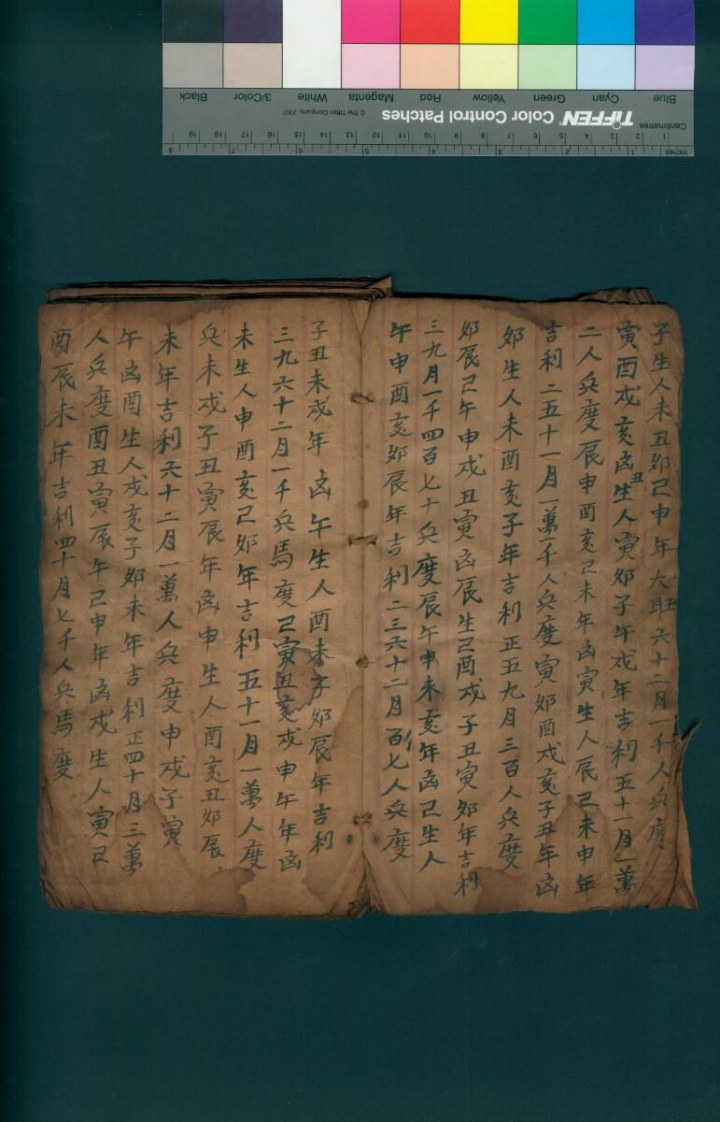 子生人未丑夘己申年大旺丑六十二月一千人兵度
寅酉戌亥凶丑生人寅夘子午戌年吉利五十一月一萬
二人兵度辰申酉亥己未年凶寅生人辰己未申年
吉利二五十一月一萬一千人兵度寅夘酉戌亥子丑年凶
夘生人未酉亥子年吉利正五九月三百人兵度
夘辰己午申戌丑寅凶辰生己酉戌子丑寅夘年吉利
三九月一千四百七十兵度辰午申未亥年凶己生人
午申酉亥夘辰年吉利二三六十二月百七人兵度
子丑未戌年凶午生人酉未子夘辰年吉利
三九六十二月一千兵馬度己寅丑亥戌申午年凶
未生人申酉亥己夘年吉利五十一月一萬人度
兵未戌子丑寅辰年凶申生人酉亥丑夘辰
未年吉利六十二月一萬人兵度申戌子寅
午凶酉生人戌亥子夘未年吉利正四十月三萬
人兵度酉丑寅辰午己申年凶戌生人寅己
酉辰未年吉利四十月七千人兵馬度
TIFFEN Color Control Patches
© The Tiffen Company, 2007
Blue Cyan Green Yellow Red Magenta White 3/Color Black
Centimetres
Inches